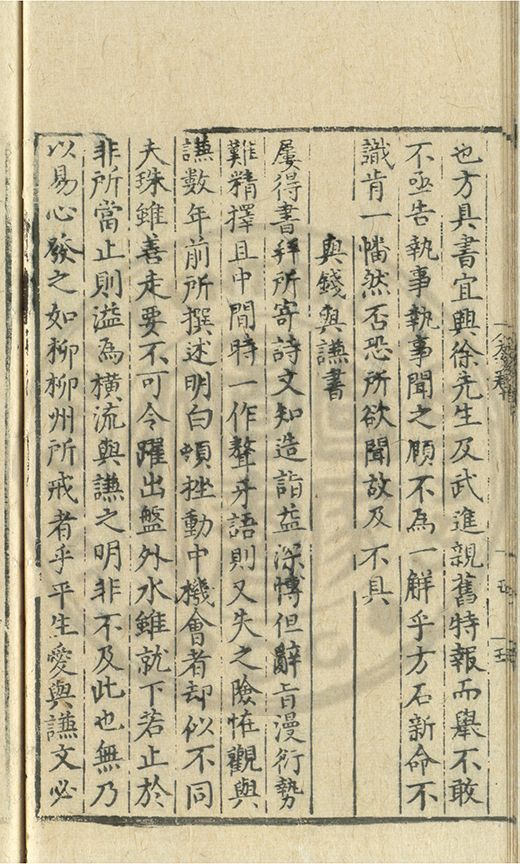 也方具書宜興徐先生及武進親舊特報而舉不敢
不亟告執事執事聞之願不為一解乎方石新命不
識肯一幡然否恐所欲聞故及不具
與錢與謙書
屢得書拜所寄詩文知造詣益深慱但辭旨漫衍勢
難精擇且中間時一作聱牙語則又失之險恠觀與
謙數年前所撰述明白頓挫動中機會者却似不同
夫珠雖善走要不可令躍出盤外水雖就下若止於
非所當止則溢為橫流與謙之明非不及此也無乃
以易心發之如柳柳州所戒者乎平生愛與謙文必